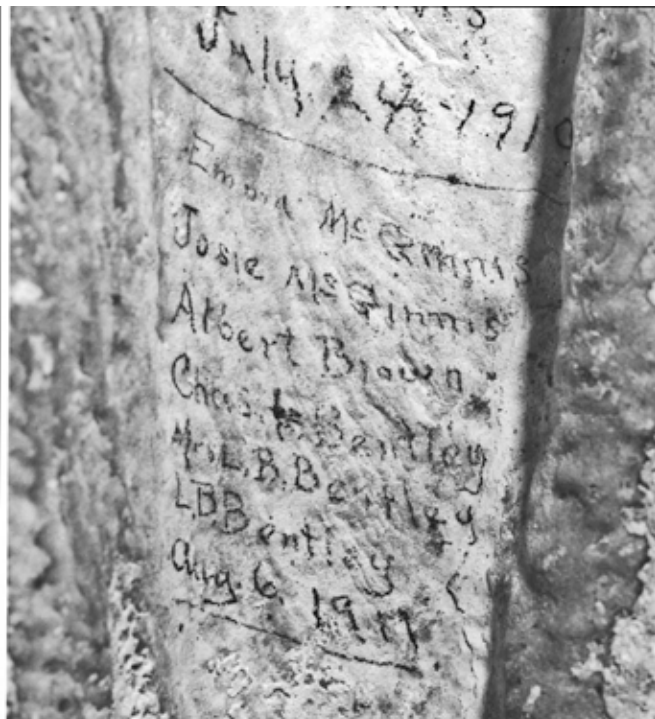 July. 24-1910
Emma McGinnis
Josie McGinnis
Albert Brown.
Chas. Bentley
Mrs. L. B. Bentley
L.B Bentley
Aug. 6. 1911